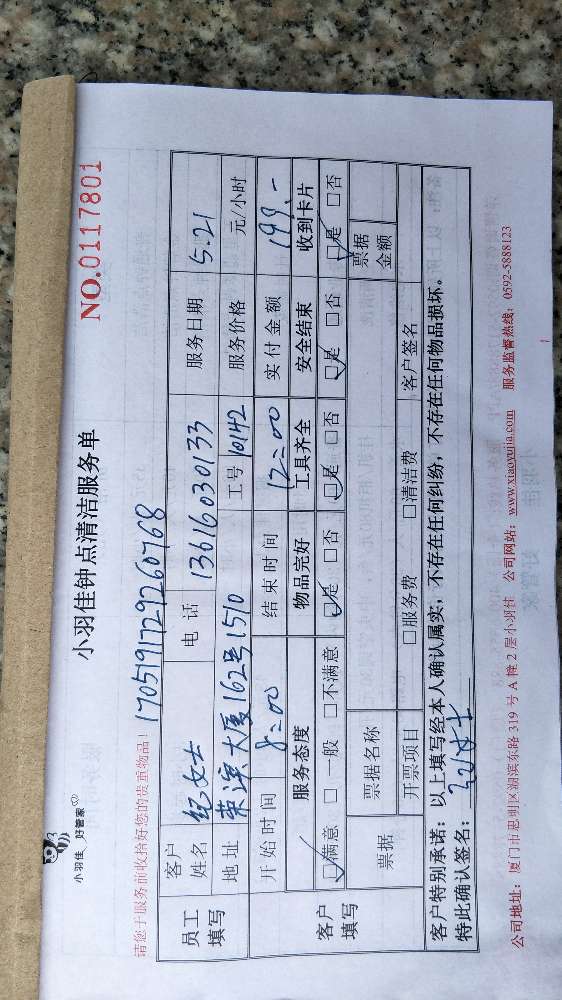 小羽佳 好管家
小羽佳钟点清洁服务单
NO.0117801
请您于服务前收拾好您的贵重物品!
170519172926076８
员工填写
客户姓名 纪女士 电话 13616030133 服务日期 5.21
地址 荣滨大厦162号1510 工号 10142 服务价格 元/小时
客户填写
开始时间 8:00 结束时间 12:00 实付金额 199.-
服务态度 物品完好 工具齐全 安全结束 收到卡片
☑满意 □一般 □不满意 ☑是 □否 ☑是 □否 ☑是 □否 ☑是 □否
票据 票据名称 票据金额
开票项目 □服务费 □清洁费 客户签名
客户特别承诺:以上填写经本人确认属实,不存在任何纠纷,不存在任何物品损坏。
特此确认签名:
公司地址:厦门市思明区湖滨东路 319 号 A 幢 2 层小羽佳 公司网站:www.xiaoyujia.com 服务监督热线:0592-5888123